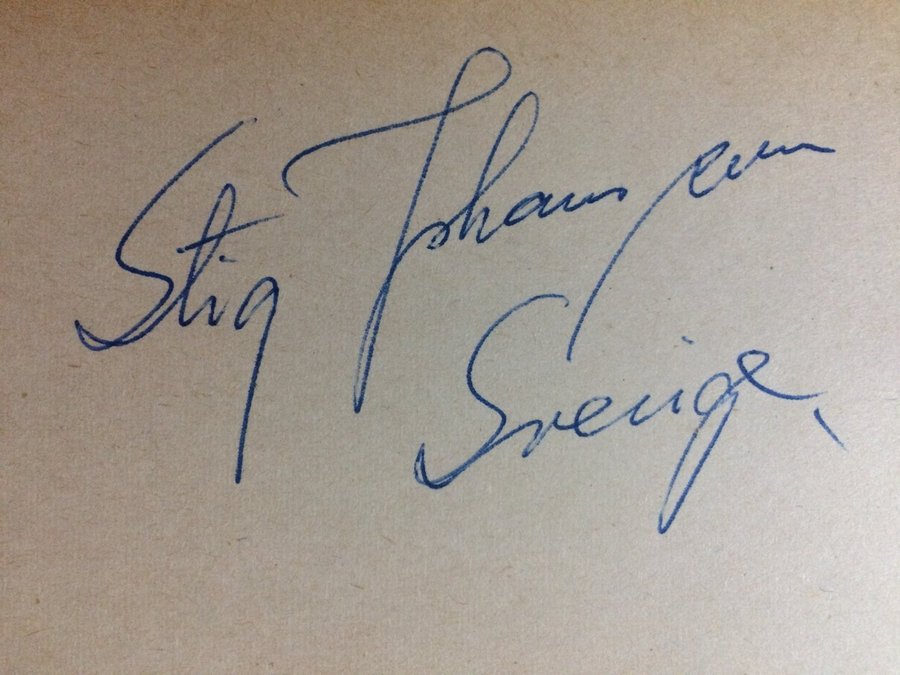 Stig Johansson
Sverige.